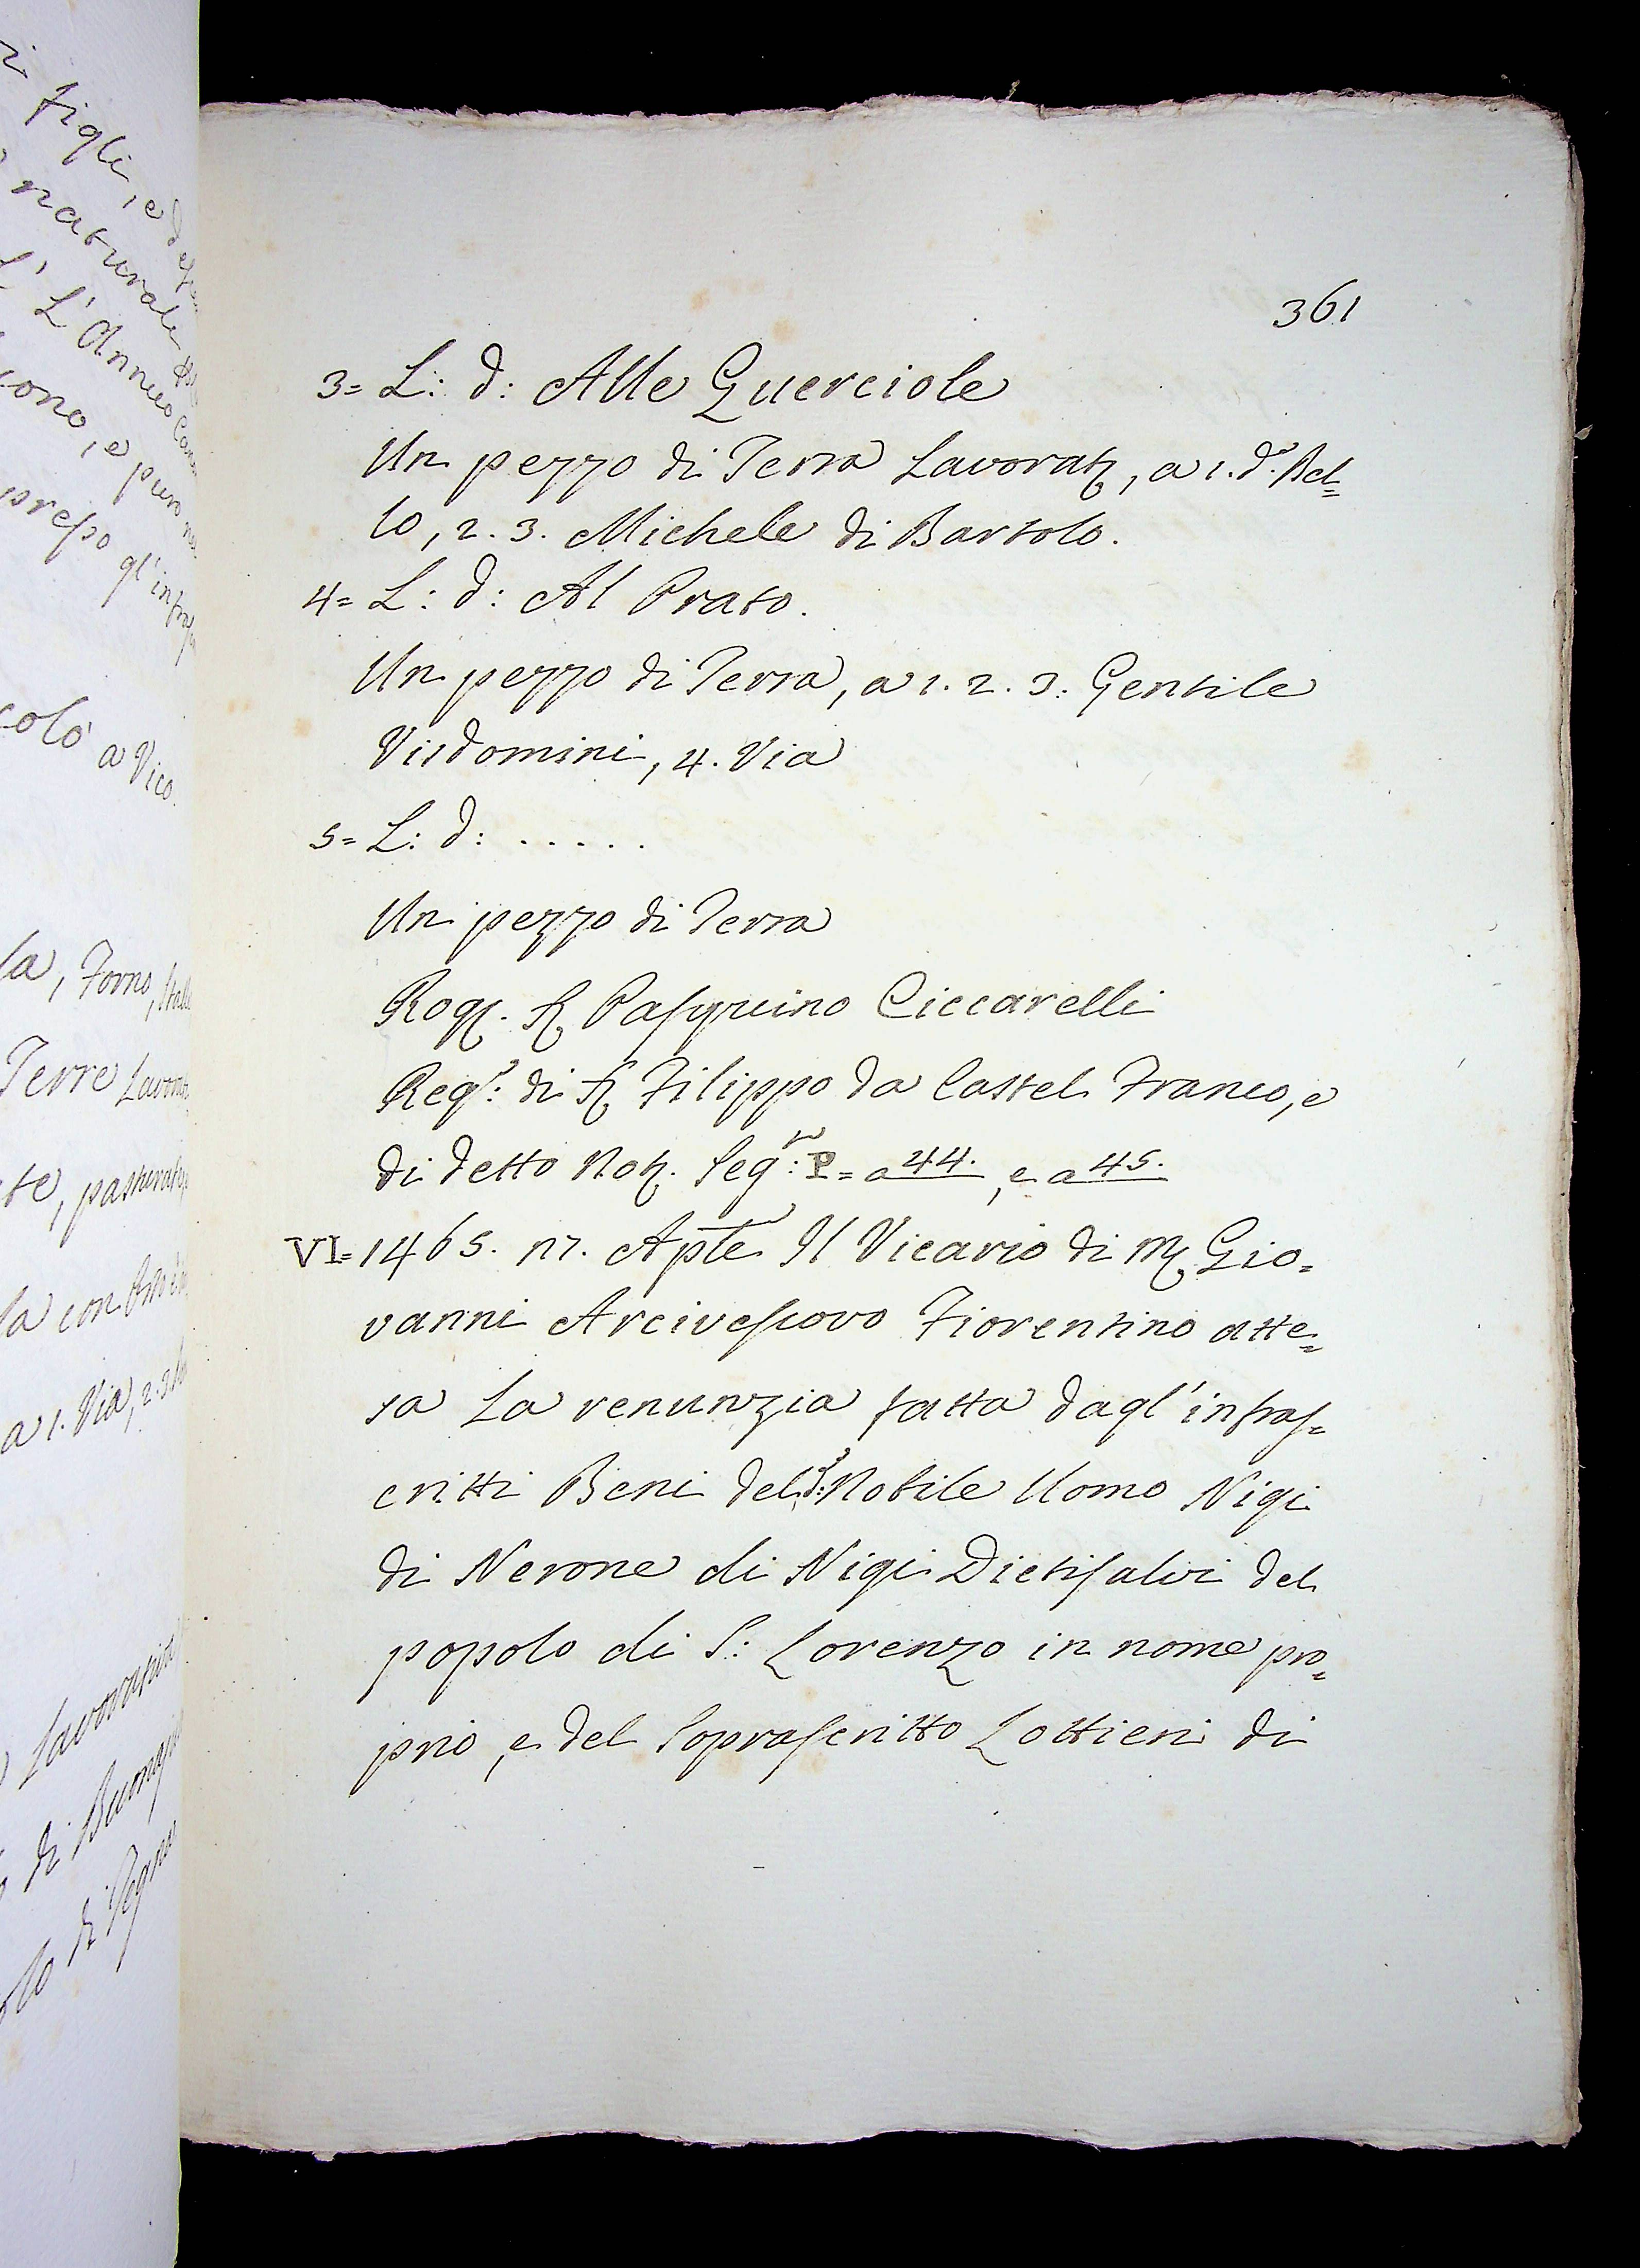 361
3= L: d: Alle Querciole
Un pezzo di Terra Lavorat, a 1. d.º Bel=
lo, 2. 3. Michele di Bartolo.
4= L: d: Al Prato.
Un pezzo di Terra, a 1. 2. 3. Gentile
Visdomini, 4. Via
5= L: d: . . . . .
Un pezzo di Terra
Rog. S Pasquino Ciccarelli
Reg: di S Filippo da Castel Franco, e
di detto Not. Seg: P= a 44., e a 45.
VI= 1465. 17. Aple Il Vicario di M Gio=
vanni Arcivescovo Fiorentino atte=
sa La renunzia fatta dagl'infras=
critti Beni del d: Nobile Uomo Nigi
di Nerone di Nigi Dietisalvi del
popolo di S: Lorenzo in nome pro=
prio, e del Soprascritto Lottieri di
figli, ed
naturale
L'Anno
cono, e pure
presso gl'infra
colò a Vico.
la, Forno,
Terre Lavor
te,
la con
a 1. Via, 2. 3
di
di